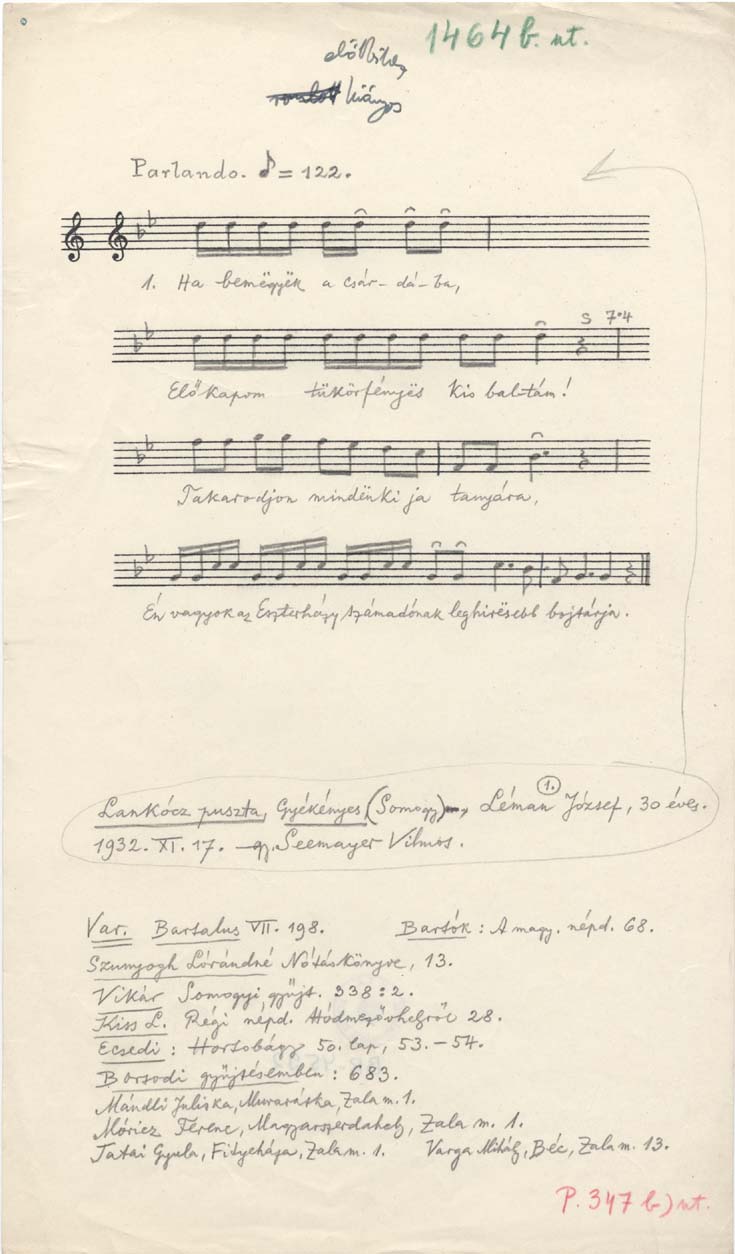 1464 b. nt.
hiányos
Parlando. ♪ = 122.
1. Ha bemëgyëk a csár-dá-ba,
S 7·4
Előkapom tükörfényës kis bal-tám!
Takarodjon mindënki ja tanyára,
Én vagyok az Eszterházy számadónak leghirësebb bojtárja.
Lankócz puszta, Gyékényes, (Somogy) Léman József, 30 éves.
1.
1932. XI. 17. gy. Seemayer Vilmos.
Var. Bartalus VII. 198. Bartók: A magy. népd. 68.
Szunyogh Lórándné Nótáskönyve, 13.
Vikár Somogyi gyűjt. 338:2.
Kiss L. Régi népd. Hódmezővhelyről 28.
Ecsedi: Hortobágy 50. lap, 53.–54.
Borsodi gyűjtésemben: 683.
Mándli Juliska, Muraráтka, Zala m. 1.
Móricz Ferenc, Magyarszerdahely, Zala m. 1.
Tatai Gyula, Fityeháza, Zala m. 1. Varga Mihály, Béc, Zala m. 13.
P. 347 b) nt.